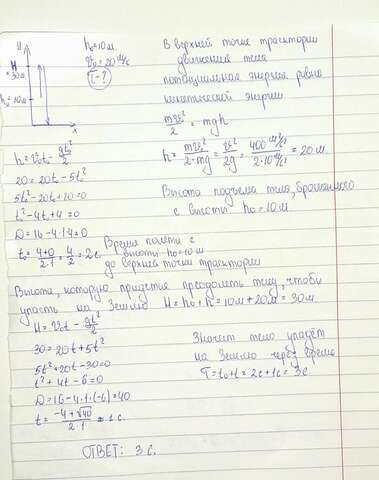 y
H = 30м
h₀ = 10м
x
h₀ = 10м
v₀ = 20 м/с
T - ?
В верхней точке траектории
движения тела
потенциальная энергия равна
кинетической энергии
mv₀²/2 = mgh
h = v₀t₀ - gt₀²/2
h = mv₀²/2·mg = v₀²/2g = 400 м²/с²/2·10 м/с² = 20м
20 = 20t₀ - 5t²
5t² - 20t + 20 = 0
t² - 4t + 4 = 0
Высота подъема тела, брошенного
с высоты h₀ = 10м
D = 16 - 4·1·4 = 0
t₀ = 4+0/2·1 = 4/2 = 2с.
Время полета с
высоты h₀ = 10м
до верхней точки траектории
Высота, которую придется преодолеть телу, чтобы
упасть на Землю H = h₀ + h = 10м + 20м = 30м
H = v₀t - gt²/2
30 = 20t + 5t²
5t² + 20t - 30 = 0
t² + 4t - 6 = 0
D = 16 - 4·1·(-6) = 40
t = -4 + √40/2·1 = 1с.
Значит тело упадёт
на Землю через время
T = t₀ + t = 2с + 1с = 3с.
ОТВЕТ: 3с.